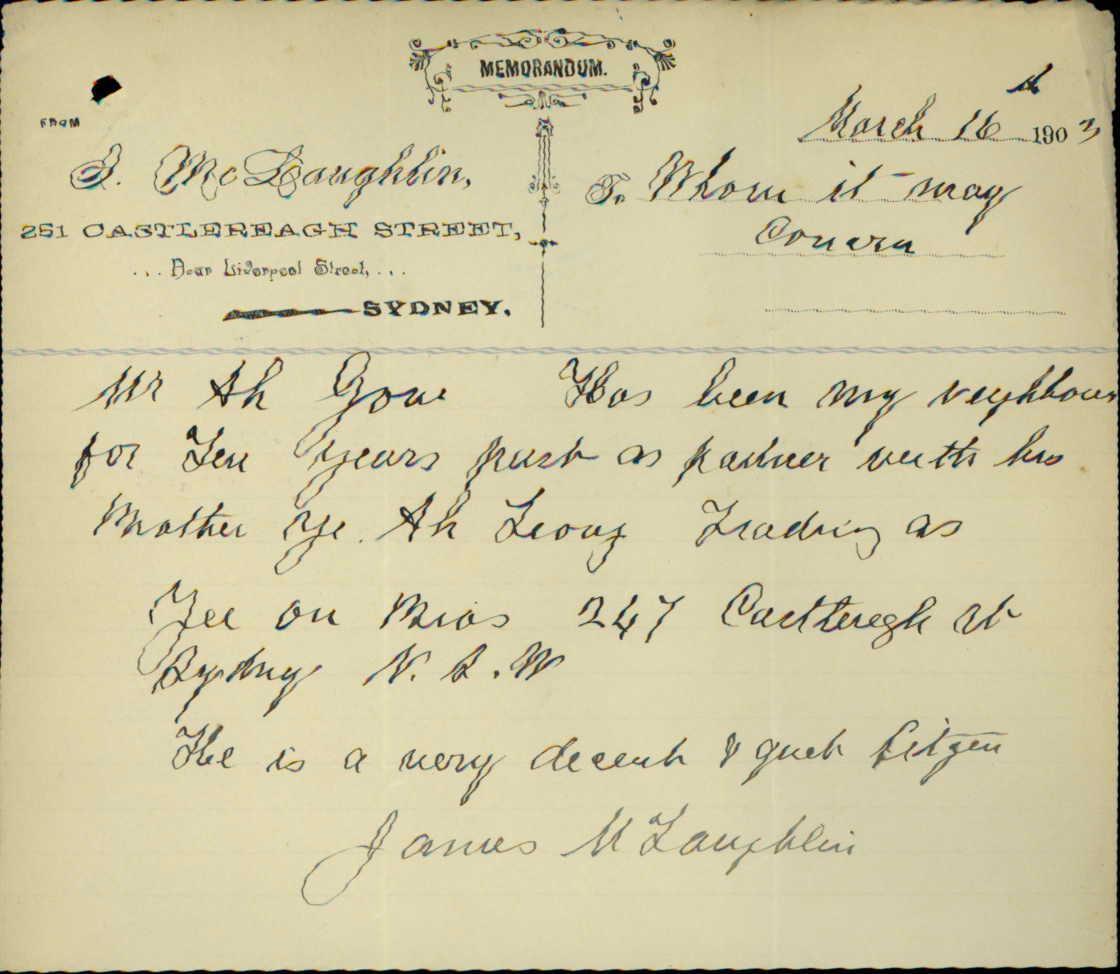 MEMORANDUM.
March 16th 1903
FROM
J. McLaughlin,
To Whom it may
251 CASTLEREAGH STREET,
Concern
... Near Liverpool Street, ...
SYDNEY.
Mr Ah Gow Has been my neighbour
for Ten years past as partner with his
Mother Ye. Ah Leong Trading as
Yee on Bros 247 Castleregh St
Sydney N. S. W
He is a very decent & quet Citzen
James McLaughlin